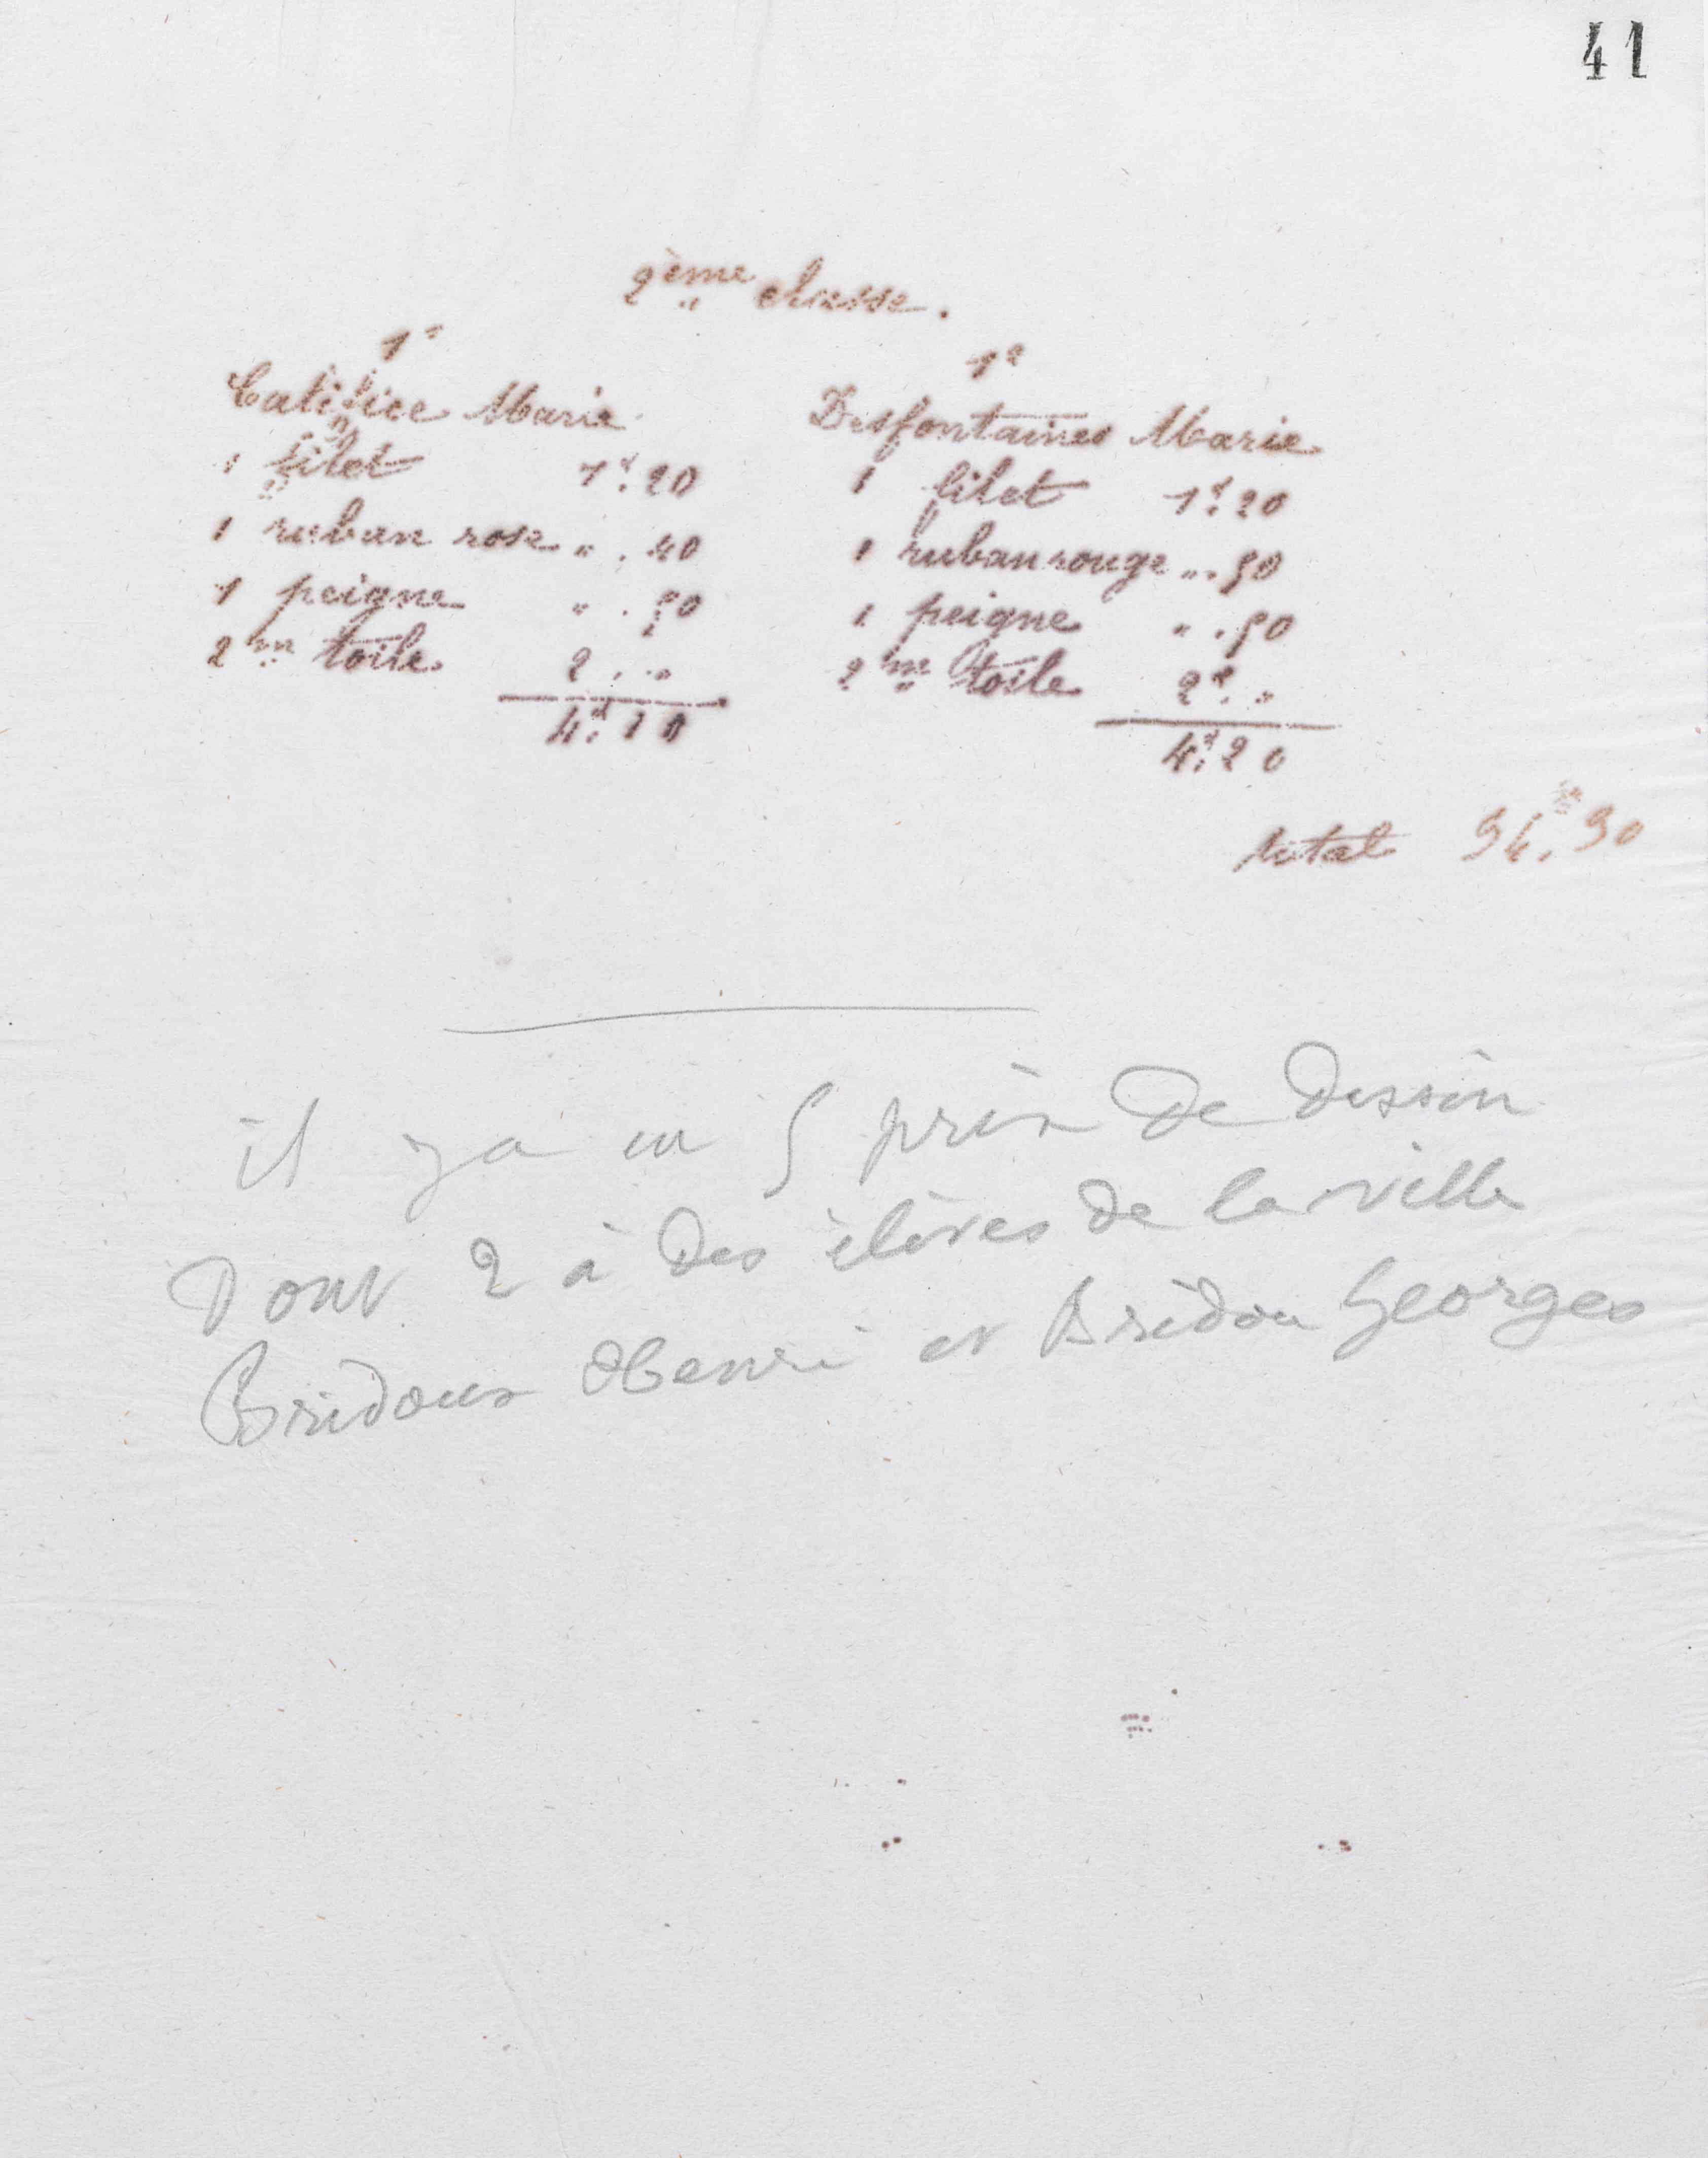 41
2ème classe.
1º
Catifice Marie
1 filet 1f.20
1 ruban rose ". 40
1 peigne ". 50
2m toile 2. "
4f.10
1º
Desfontaines Marie
1 filet 1f.20
1 ruban rouge ". 50
1 peigne ". 50
2m toile 2f. "
4f.20
total 94.90
il y a eu 5 prix de dessin
Dont 2 à des élèves de la ville
Bridoux Henri et Bridou Georges